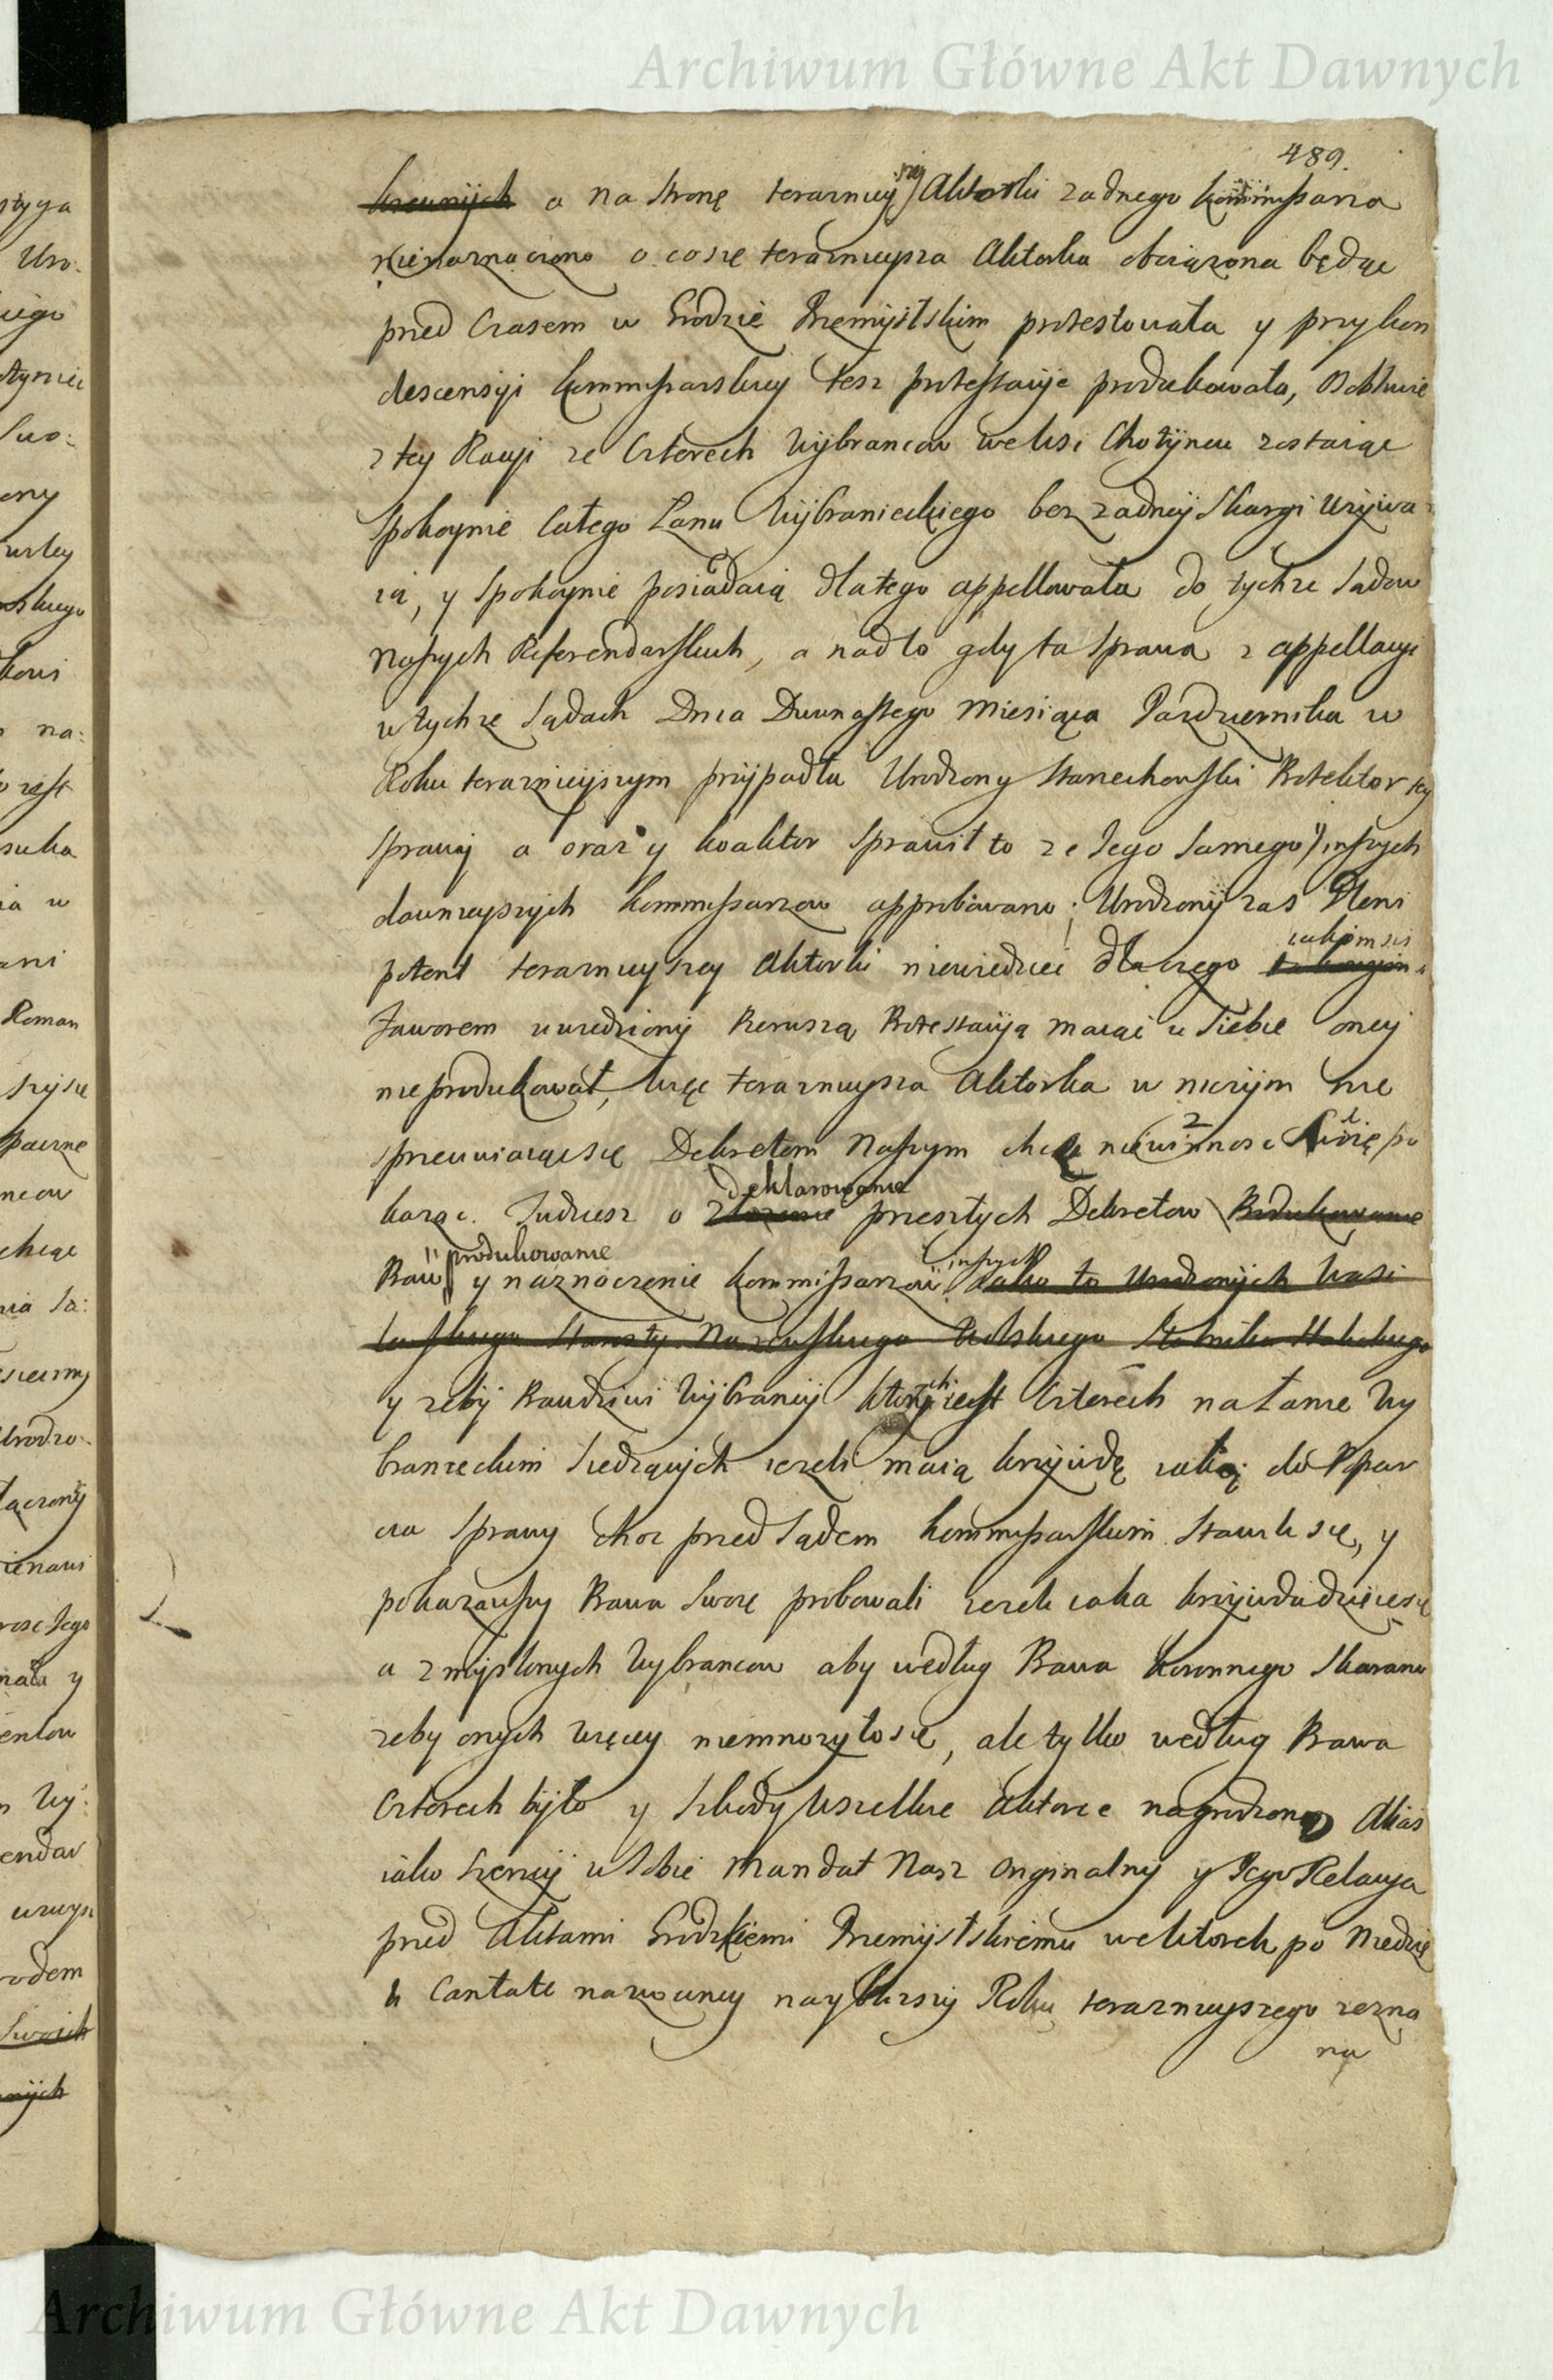 Archiwum Główne Akt Dawnych
489.
a na stronę teraznieyszey Aktorki zadnego kommissarza
nienaznaczono o co się teraznieysza Aktorka obciązona będąc
przed Czasem w Grodzie Przemyslskim protestowała y przy kon
descensyi kommissarskiey tesz protestacyie produkowała, osobliwie
z tey Racyi ze Czterech Wybrancow we Wsi Chotyncu zostaiąc
Spokoynie Całego Łanu Wybranieckiego bez zadney Skargi Uzywa
ią, y Spokoynie posiadaią dlatego appellowała do tychze Sądow
Naszych Referendarskich, a nadto gdy ta Sprawa z appellacyi
w tychze Sądach Dnia Dwunastego Miesiąca Pazdziernika w
Roku teraznieyszym przypadła Urodzony Starzechowski Protektor tey
Sprawy a oraz y koaktor Sprawił to ze Jego Samego y inszych
dawnieyszych kommissarzow approbowano; Urodzony zas Pleni
potent teraznieyszey Aktorki niewiedziec dlaczego iakimsis
faworem uwiedziony Pierwszą Protestacyią maiąc u Siebie oney
nieprodukował, więc teraznieysza Aktorka w niczym nie
sprzeciwiaiąc się Dekretom Naszym chcąc niewinnosc Swoię po
kazac. Tudziesz o deklarowanie przeszłych Dekretow
Praw produkowanie y naznaczenie kommissarzow inszych jako to Urodzonych Wasi
y zeby Prawdziwi Wybrancy ktorych iest Czterech na Łanie Wy
branieckim Siedzących iezeli maią krzywdę iaką do Popar
cia Sprawy choc przed Sądem kommissarskim Stawili się, y
pokazawszy Prawa Swoie probowali iezeli iaka krzywda dzieie się
a zmyslonych Wybrancow aby według Prawa koronnego Skarano
zeby onych więcey niemnozyło się, ale tylko według Prawa
Czterech było y Szkody Wszelkie Aktorce nagrodzono Alias
iako Szerzey w Sobie Mandat Nasz Originalny y Jego Relacya
przed Aktami Grodzkiemi Przemyslskiemi we Wtorek po Niedzie
li Cantate nazwaney naybliszszy Roku teraznieyszego zezna
na
Archiwum Główne Akt Dawnych